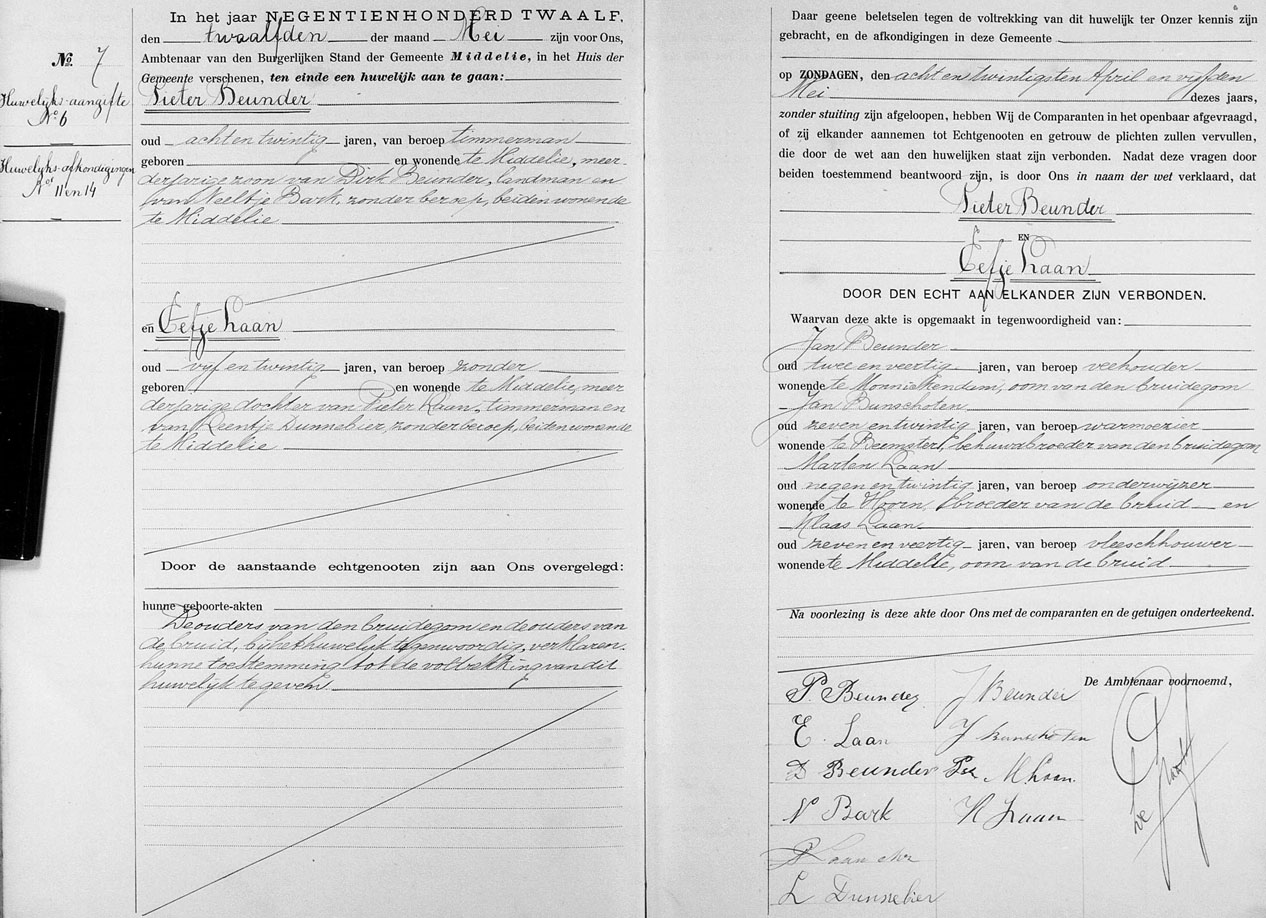 In het jaar NEGENTIENHONDERD TWAALF,
den twaalfden der maand Mei zijn voor Ons,
Ambtenaar van den Burgerlijken Stand der Gemeente Middelie, in het Huis der
Gemeente verschenen, ten einde een huwelijk aan te gaan:
No. 7
Huwelijks-aangifte
No 6
Huwelijks-afkondigingen
Nos 11 en 14
Pieter Beunder
oud acht en twintig jaren, van beroep timmerman
geboren en wonende te Middelie, meer
derjarige zoon van Dirk Beunder, landman en
van Neeltje Bark, zonder beroep, beiden wonende
te Middelie
en Eefje Laan
oud vijf en twintig jaren, van beroep zonder
geboren en wonende te Middelie, meer
derjarige dochter van Pieter Laan, timmerman en
van Leentje Dunnebier, zonder beroep, beiden wonende
te Middelie
Door de aanstaande echtgenooten zijn aan Ons overgelegd:
hunne geboorte-akten
De ouders van den bruidegom en de ouders van
de bruid, bij het huwelijk tegenwoordig, verklaren
hunne toestemming tot de voltrekking van dit
huwelijk te geven
Daar geene beletselen tegen de voltrekking van dit huwelijk ter Onzer kennis zijn
gebracht, en de afkondigingen in deze Gemeente
op ZONDAGEN, den acht en twintigsten April en vijfden
Mei dezes jaars,
zonder stuiting zijn afgeloopen, hebben Wij de Comparanten in het openbaar afgevraagd,
of zij elkander aannemen tot Echtgenooten en getrouw de plichten zullen vervullen,
die door de wet aan den huwelijken staat zijn verbonden. Nadat deze vragen door
beiden toestemmend beantwoord zijn, is door Ons in naam der wet verklaard, dat
Pieter Beunder
EN
Eefje Laan
DOOR DEN ECHT AAN ELKANDER ZIJN VERBONDEN.
Waarvan deze akte is opgemaakt in tegenwoordigheid van:
Jan Beunder
oud twee en veertig jaren, van beroep veehouder
wonende te Monnickendam, oom van den bruidegom
Jan Bunschoten
oud zeven en twintig jaren, van beroep warmoezier
wonende te Beemster, behuwdbroeder van den bruidegom
Marten Laan
oud negen en twintig jaren, van beroep onderwijzer
wonende te Hoorn, broeder van de bruid en
Klaas Laan
oud zeven en veertig jaren, van beroep vleeschhouwer
wonende te Middelie, oom van de bruid
Na voorlezing is deze akte door Ons met de comparanten en de getuigen onderteekend.
De Ambtenaar voornoemd,
P. Beunder J Beunder
E. Laan J Bunschoten
D Beunder Pz M Laan
N Bark K Laan
P Laan
L Dunnebier